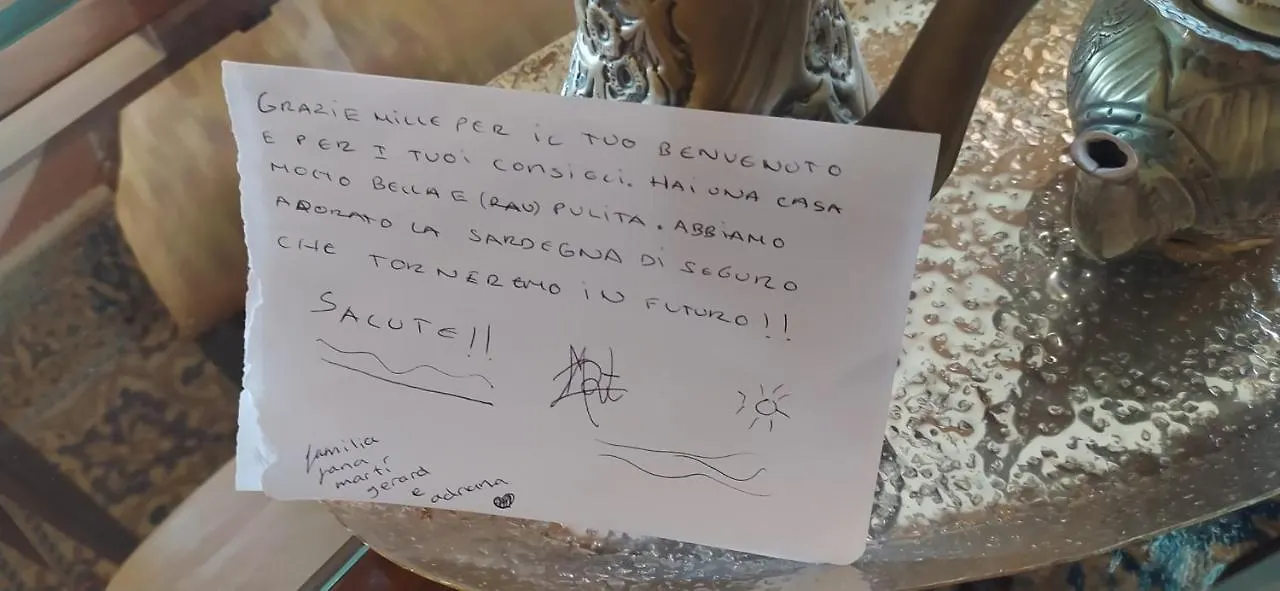 GRAZIE MILLE PER iL TUO BENVENUTO
E PER I TUOi CONSIGLI. HAI UNA CASA
MOLTO BELLA E (RAU) PULITA. ABBiAMO
ADORATO LA SARDEGNA Di SEGURO
CHE TORNEREMO iN FUTURO!!
SALUTE!!
familia
jana
martí
gerard
e adriana